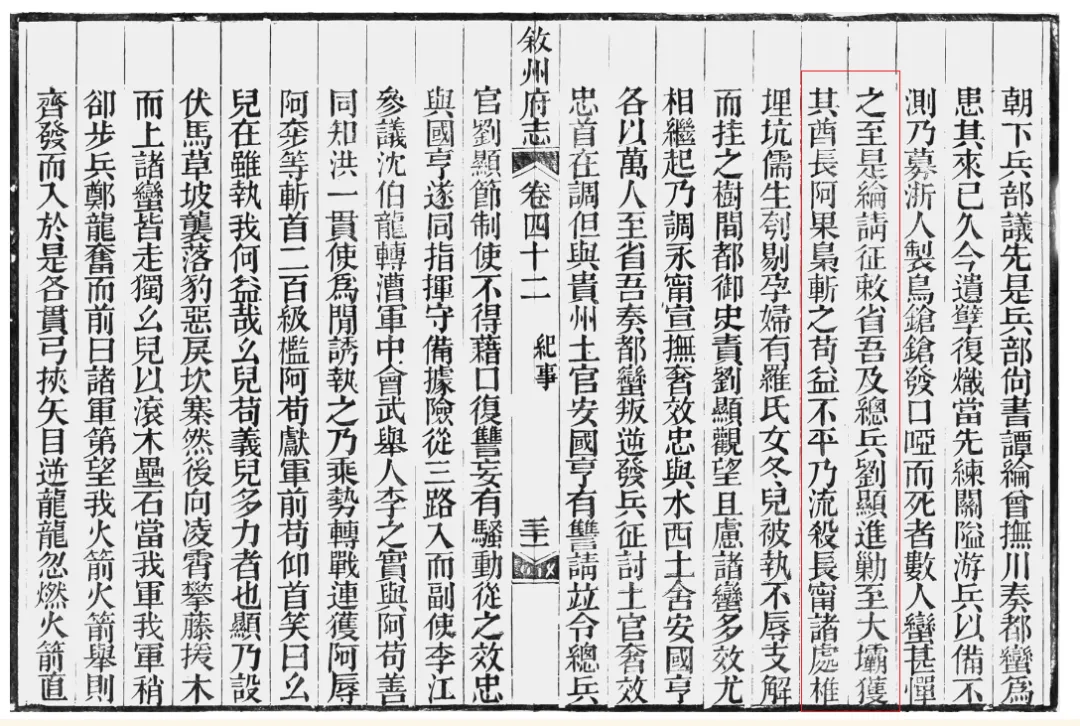 朝下兵部議先是兵部尙書譚綸曾撫川奏都蠻爲
患其來已久今遺孽復熾當先練關隘游兵以備不
測乃募浙人製鳥鎗鎗發口啞而死者數人蠻甚憚
之至是綸請征敕省吾及總兵劉顯進勦至大壩獲
其酋長阿果梟斬之苟益不平乃流殺長甯諸處椎
埋坑儒生刳剔孕婦有羅氏女冬兒被執不辱支解
而挂之樹間都御史責劉顯觀望且慮諸蠻多效尤
相繼起乃調永甯宣撫奢效忠與水西土舍安國亨
各以萬人至省吾奏都蠻叛逆發兵征討土官奢效
忠首在調但與貴州土官安國亨有讐請並令總兵
敘州府志 卷四十二 紀事 三十
官劉顯節制使不得藉口復讐妄有騷動從之效忠
與國亨遂同指揮守備據險從三路入而副使李江
參議沈伯龍轉漕軍中會武舉人李之實與阿苟善
同知洪一貫使爲閒誘執之乃乘勢轉戰連獲阿辱
阿奔等斬首二百級檻阿苟獻軍前苟仰首笑曰幺
兒在雖執我何益哉幺兒苟義兒多力者也顯乃設
伏馬草坡襲落豹惡戾坎寨然後向凌霄攀藤援木
而上諸蠻皆走獨幺兒以滾木壘石當我軍我軍稍
卻步兵鄭龍奮而前曰諸軍第望我火箭火箭舉則
齊發而入於是各貫弓挾矢目逆龍龍忽燃火箭直